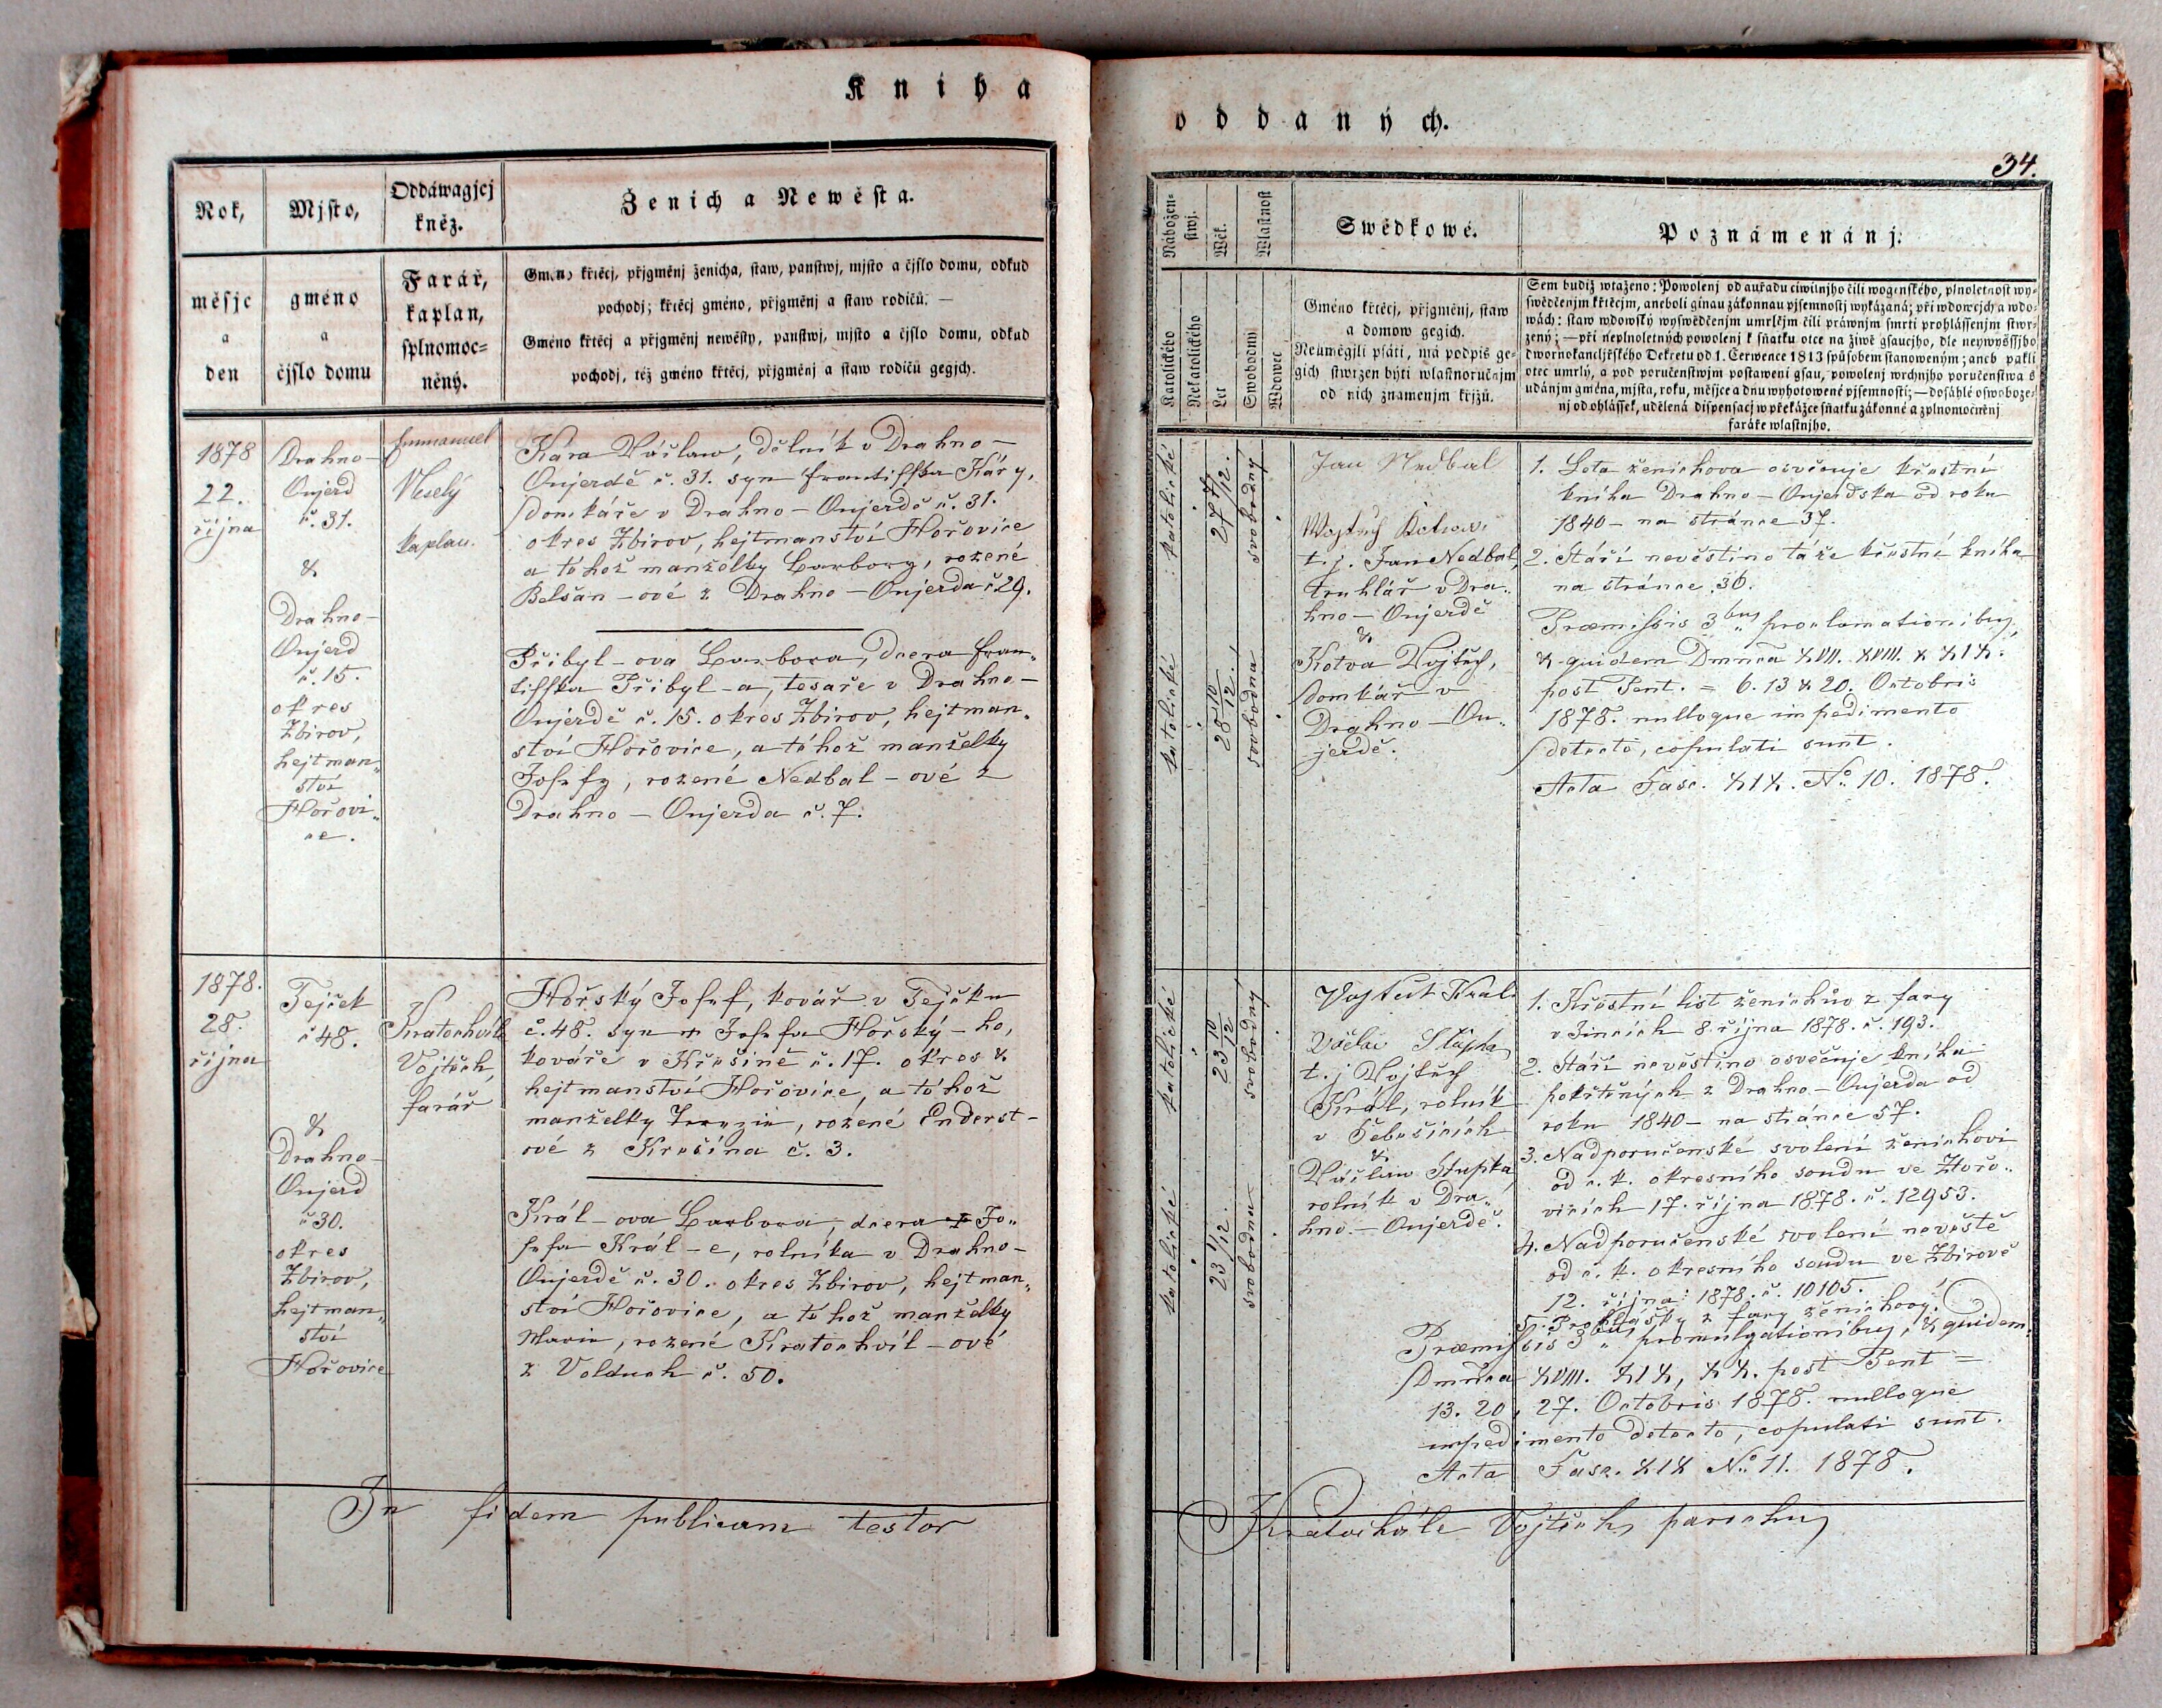 Kniha
oddaných.
34.
Rok,
Mjsto,
Oddáwagjcj
kněz.
Ženich a Newěsta.
měsjc
a
den
gméno
a
čjslo domu
Farář,
kaplan,
splnomoc=
něný.
Gméno křtěcj, přjgměnj ženicha, staw, panstwj, mjsto a čjslo domu, odkud
pochodj; křtěcj gméno, přjgměnj a staw rodičů. —
Gméno křtěcj a přjgměnj newěsty, panstwj, mjsto a čjslo domu, odkud
pochodj, též gméno křtěcj, přjgměnj a staw rodičů gegjch.
1878
22.
října
Drahno-
Oujezd
č. 31.
&
Drahno-
Oujezd
č. 15.
okres
Zbirov,
hejtman„
ství
Hořovi„
ce.
Emmanuel
Veselý
kaplan.
Kára Václaw, dělník v Drahno-
Oujezdě č. 31. syn Františka Káry,
domkáře v Drahno-Oujezdě č. 31.
okres Zbirov, hejtmanství Hořovice
a téhož manželky Barbory, rozené
Belšan-ové z Drahno-Oujezda č 29.
Přibyl-ova Barbora, dcera Fran„
tiška Přibyl-a, tesaře v Drahno-
Oujezdě č. 15. okres Zbirov, hejtman„
ství Hořovice, a téhož manželky
Josefy, rozené Nedbal-ové z
Drahno-Oujezda č. 7.
1878.
28.
října
Tejček
č 48.
&
Drahno-
Oujezd
č 30.
okres
Zbirov,
hejtman„
ství
Hořovice
Kratochvíle
Vojtěch,
farář
Hořský Josef, kovář v Tejčku
č. 48. syn + Josefa Hořský-ho,
kováře v Křešíně č. 17. okres &
hejtmanství Hořovice, a téhož
manželky Terezie, rozené Enderst-
ové z Křešína č. 3.
Král-ova Barbora, dcera + Jo„
sefa Král-e, rolníka v Drahno-
Oujezdě č. 30. okres Zbirov, hejtman„
ství Hořovice, a téhož manželky
Marie, rozené Kratochvíl-ové
z Volduch č. 50.
In fidem publicam testor
Nábožen-
stwj.
Wěk.
Wlastnost
Swědkowé.
Poznámenánj:
Katolického
Nekatolického
Let
Swobodný
Wdowec
Gméno křtěcj, přjgměnj, staw
a domow gegich.
Neuměgjli psáti, má podpis ge=
gich stwrzen býti wlastnoručnjm
od nich znamenjm křjžů.
Sem budiž wtaženo: Powolenj od auřadu ciwilnjho čili wogenského, plnoletnost wy-
swědčenjm křtěcjm, aneboli ginau zákonnau pjsemnostj wykázaná; při wdowcjch a wdo-
wách: staw wdowský wyswědčenjm umrlčjm čili práwnjm smrti prohlássenjm stwr-
zený; — při neplnoletných powolenj k sňatku otce na žiwě gsaucjho, dle neywyššjho
dwornokancljřského Dekretu od 1. Čerwence 1813 spůsobem stanoweným; aneb pakli
otec umrlý, a pod poručenstwjm postaweni gsau, powolenj wrchnjho poručenstwa s
udánjm gména, mjsta, roku, měsjce a dnu wyhotowené pjsemnosti; — dosáhlé oswoboze-
nj od ohlássek, udělená dispensacj w překážce sňatku zákonné a zplnomocněnj
faráře wlastnjho.
katolické
27 7/12.
svobodný
katolické
28 10/12.
svobodna
Jan Nedbal
Wojtěch Kotwa
t.j. Jan Nedbal,
truhlář v Dra„
hno-Oujezdě
&
Kotva Vojtěch,
domkář v
Drahno-Ou„
jezdě.
1. Leta ženichova osvěčuje křestní
kniha Drahno-Oujezdska od roku
1840- na stránce 37.
2. Stáří nevěstino táže křestní kniha
na stránce 36.
Præmissis 3bus proclamationibus,
& quidem Dmnca XVII. XVIII. & XIX.
post Pent. = 6. 13 & 20. Octobris
1878. nulloque impedimento
detecto, copulati sunt.
Acta Fasc. XIX. No. 10. 1878.
katolické
23 10/12
svobodný
katolické
23 1/12.
svobodna
Vojtěch Král
Václav Stupka
t.j Vojtěch
Král, rolník
v Třebušicích
&
Václaw Stupka,
rolník v Dra„
hno-Oujezdě.
1. Křestní list ženichův z fary
v Jincích 8. října 1878. č. 193.
2. Stáří nevěstino osvěčuje kniha
pokřtěných z Drahno-Oujezda od
roku 1840- na stránce 57.
3. Nadporučenské svolení ženichovi
od c. k. okresního soudu ve Hořo„
vicích 17. října 1878. č. 12953.
4. Nadporučenské svolení nevěstě
od c. k. okresního soudu ve Zbirově
12. října 1878. č. 10105.
5. Prohlášky z fary ženichovy.
Præmissis 3bus promulgationibus, & quidem
Dmnca XVIII. XIX, XX. post Pent =
13. 20, 27. Octobris 1878. nulloque
impedimento detecto, copulati sunt.
Acta Fasc. XIX No. 11. 1878.
Kratochvíle Vojtěch, parochus